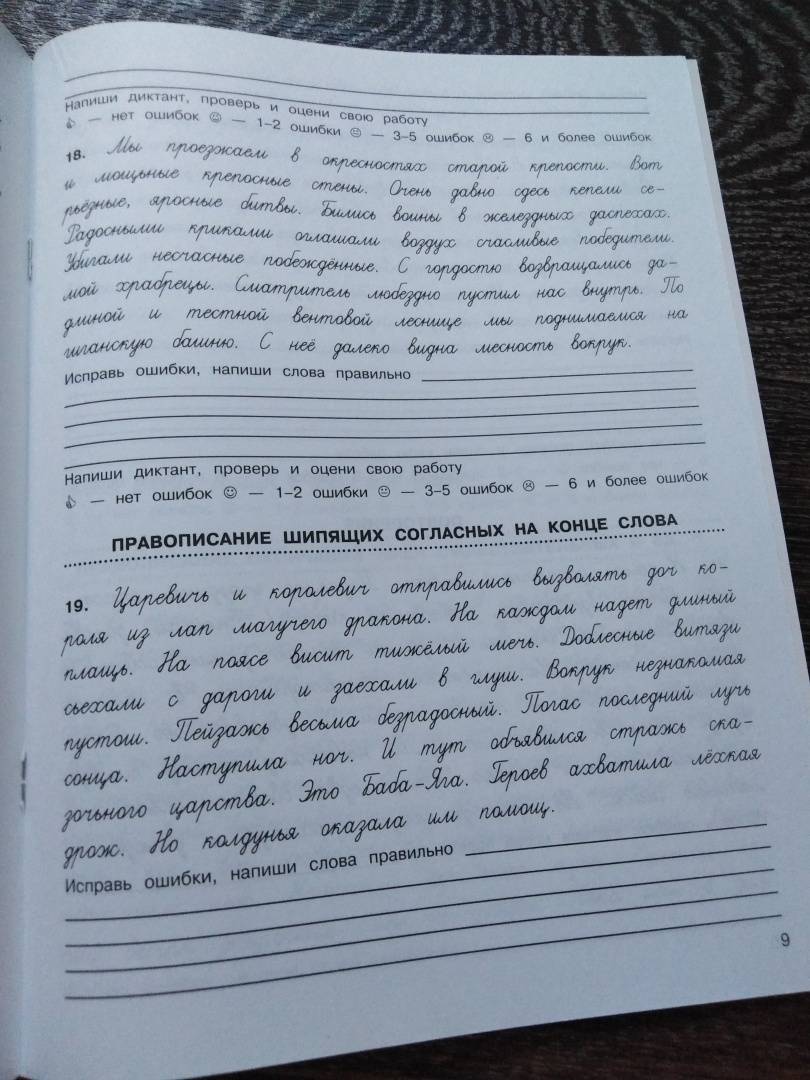 Напиши диктант, проверь и оцени свою работу
👍 — нет ошибок ☺ — 1–2 ошибки 😐 — 3–5 ошибок ☹ — 6 и более ошибок
18. Мы проезжаем в окресностях старой крепости. Вот
и мощьные крепосные стены. Очень давно сдесь кепели се-
рьёзные, яросные битвы. Бились воины в желездных даспехах.
Радосными криками оглашали воздух счасливые победители.
Убигали несчасные побеждённые. С гордостю возвращались да-
мой храбрецы. Сматритель любездно пустил нас внутрь. По
длиной и тестной вентовой леснице мы поднимаемся на
гиганскую башню. С неё далеко видна месность вокрук.
Исправь ошибки, напиши слова правильно
Напиши диктант, проверь и оцени свою работу
👍 — нет ошибок ☺ — 1–2 ошибки 😐 — 3–5 ошибок ☹ — 6 и более ошибок
ПРАВОПИСАНИЕ ШИПЯЩИХ СОГЛАСНЫХ НА КОНЦЕ СЛОВА
19. Царевичь и королевич отправились вызволять доч ко-
роля из лап магучего дракона. На каждом надет длиный
плащь. На поясе висит тижёлый мечь. Доблесные витязи
сьехали с дароги и заехали в глуш. Вокрук незнакомая
пустош. Пейзажь весьма безрадосный. Погас последний лучь
сонца. Наступила ноч. И тут объявился стражь ска-
зочьного царства. Это Баба-Яга. Героев ахватила лёхкая
дрож. Но колдунья оказала им помощ.
Исправь ошибки, напиши слова правильно
9